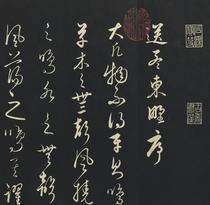 送孟東野序
大凡物不得平則鳴
草木之無聲風撓
之鳴水之無聲
風蕩之鳴其躍